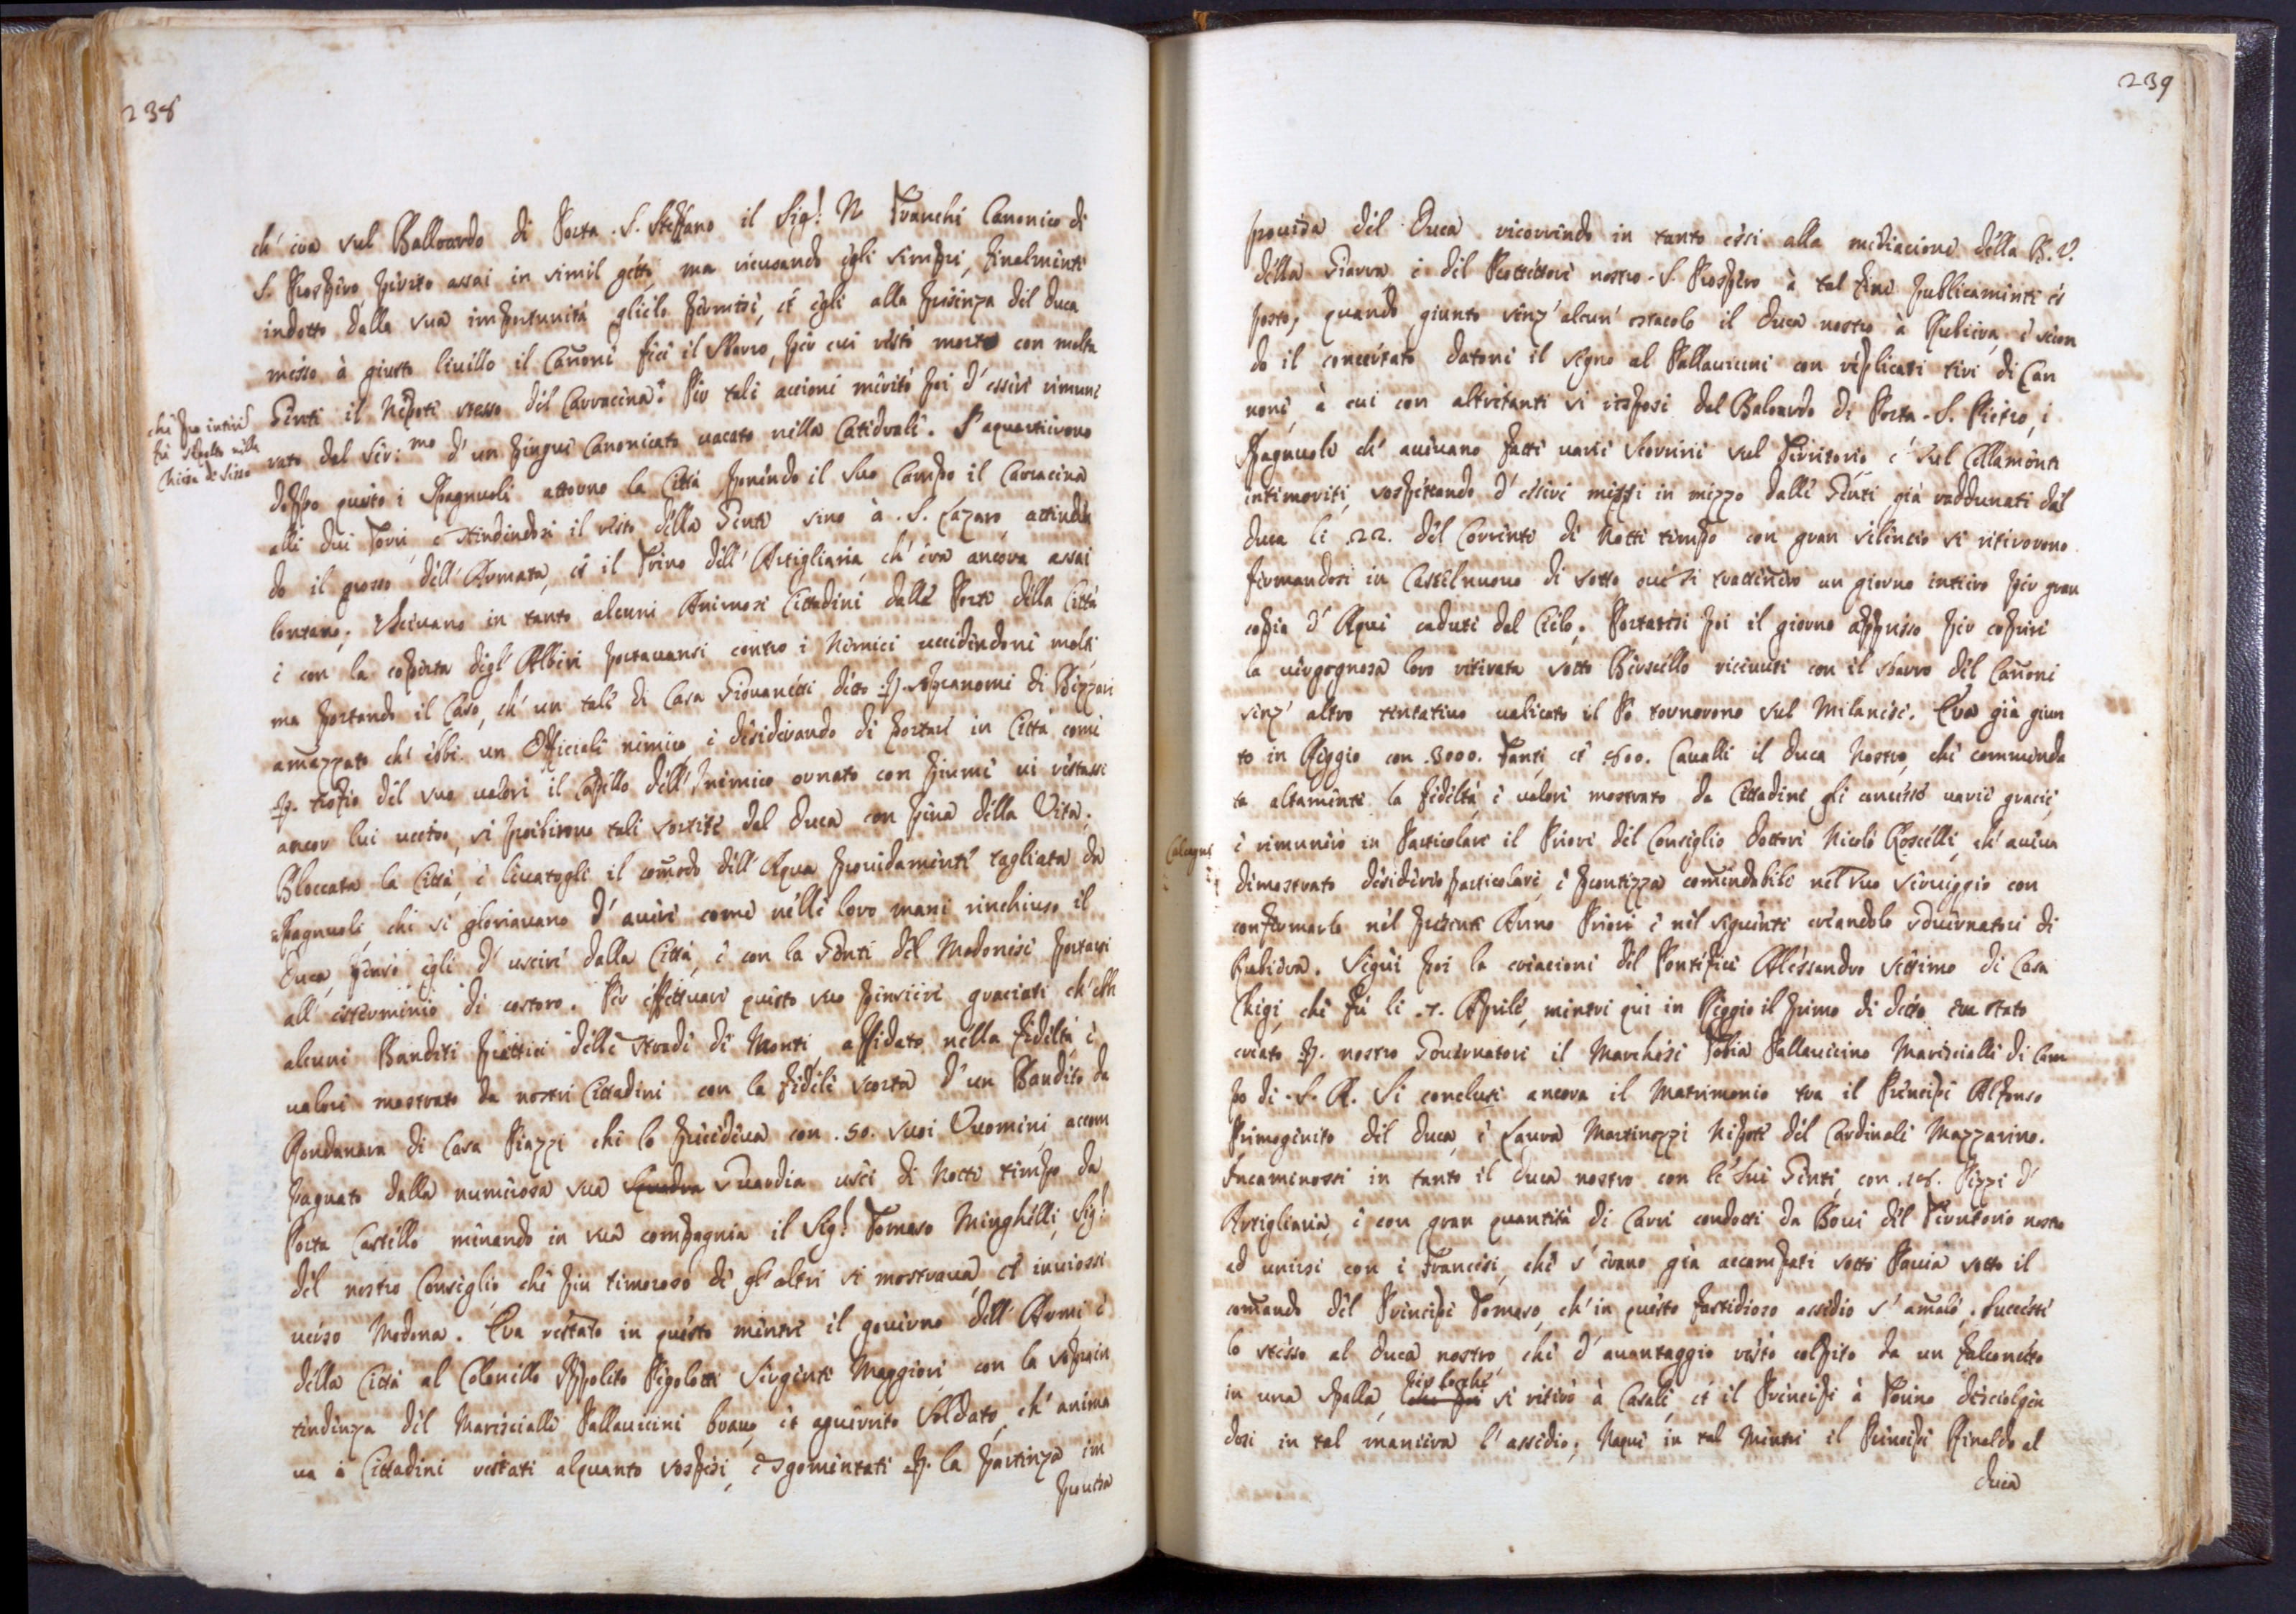 238
ch' era sul Balloardo di Porta S. Steffano il Sig.r N Franchi Canonico di
S. Prospero, perito assai in simil getto, ma ricusando egli sempre, finalmente
indotto dalla sua importunità glielo permise, et egli alla presenza del Duca
messo à giusto livello il Canone fece il sbarro, per cui restò morto con molta
Gente il Nepote stesso del Carracina. Per tale accione meritò poi d' essere rimune
che fu
fu sepolto nella
Chiesa di Sesso
rato dal Ser.mo d' un pingue Canonicato vacato nella Catedrale. S' aquartierono
doppo questo i Spagnuoli attorno la Città ponendo il suo Campo il Carracina
alli due Torri, e stendendosi il resto della Gente sino à S. Lazaro, attenden
do il grosso dell' Armata, et il Treno dell' Artigliaria, ch' era ancora assai
lontano; Uscivano in tanto alcuni Animosi Cittadini dalle Porte della Città
e con la coperta degl' Alberi portavansi contro i Nemici uccidendone molti,
ma portando il Caso, ch' un tale di Casa Giovanetti detto p. sopranome di Bizzari
amazzato ch' ebbe un Officiale nemico, e desiderando di portare in Città come
p. trofeo del suo valore il Capello dell' Inimico ornato con piume vi restasse
ancor lui ucciso, si proibirono tali sortite dal Duca con pena della Vita.
Bloccata la Città, e levatogli il comodo dell' Aqua providamente tagliata da
Spagnuoli, che si gloriavano d' avere come nelle loro mani rinchiuso il
Duca, pensò egli d' uscire dalla Città, e con la Gente del Modonese portarsi
all' esterminio di costoro. Per effettuare questo suo pensiere graciati ch' ebbe
alcuni Banditi prattici delle strade di Monte, affidato nella fideltà, e
valore mostrato da nostri Cittadini con la fidele scorta d' un Bandito da
Rondanara di Casa Piazzi che lo precedeva con .50. suoi Uuomini, accom
pagnato dalla numerosa sua Squadra Guardia uscì di Notte tempo da
Porta Castello menando in sua compagnia il Sig.r Tomaso Minghelli, Sig.r
del nostro Consiglio, che piu timoroso de gl' altri si mostrava, et inviossi
verso Modona. Era restato in questo mentre il governo dell' Armi, e
della Città al Colonello Ippolito Pegolotti Sergente Maggiore, con la soprain
tendenza del Maresciallo Pallavicini bravo, et aguerrito Soldato, ch' anima
va i Cittadini restati alquanto sospesi, e sgomentati p. la partenza im
provisa
239
provisa del Duca, ricorrendo in tanto essi alla mediacione della B. V.
della Giarra, e del Prottettore nostro S. Prospero à tal fine publicamente es
posto; quando giunto senz' alcun' ostacolo il Duca nostro à Rubiera, e secon
do il concertato datone il segno al Pallavicini con replicati tiri di Can
none, à cui con altretanti si rispose dal Baloardo di Porta S. Pietro, i
Spagnuoli ch' avevano fatti varii scorrerie sul Territorio, e sul Cellamonte
intimoriti, sospettando d' essere messi in mezzo dalle Genti già raddunati dal
Duca li .22. del Corrente di Notte tempo con gran silencio si ritirorono
fermandosi in Castelnuovo di sotto ove si trattennero un giorno intiero per gran
copia d' Aqua caduta dal Cielo; Portatisi poi il giorno appresso per coprire
la vergognosa loro ritirata sotto Berscello ricevuti con il sbarro del Canone
senz' altro tentativo valicato il Pò tornorono sul Milanese. Era già giun
to in Reggio con .3000. Fanti, et 800. Cavalli il Duca Nostro, che commenda
ta altamente la fideltà, e valore mostrato da Cittadini gli concesse varie gracie,
Calcagni
e rimunerò in Particolare il Priore del Consiglio Dottore Nicolò Roscelli, ch' aveva
dimostrato desiderio particolare, e prontezza comendabile nel suo serviggio con
confermarlo nel presente Anno Priore e nel seguente creandolo Governatore di
Rubiera. Seguì poi la creacione del Pontefice Alessandro settimo di Casa
Chigi, che fù li .7. Aprile, mentre quì in Reggio il primo di detto era stato
creato p. nostro Governatore il Marchese Tobia Pallavicino Maresciallo di Cam
po di S. A. Si concluse ancora il Matrimonio tra il Principe Alfonso
Primogenito del Duca, e Laura Martinozzi Nipote del Cardinale Mazzarino.
Incaminossi in tanto il Duca nostro con le sue Genti, con .18. Pezzi d'
Artigliaria, e con gran quantità di Carri condotti da Bovi del Territorio nostro
ad unirsi con i Francesi, che s' erano già accampati sotto Pavia sotto il
comando del Principe Tomaso, ch' in questo fastidioso assedio s' amalò. Successe
lo stesso al Duca nostro, che d' avantaggio restò colpito da un falconetto
in una spalla, per locchè si ritirò à Casale, et il Principe à Torino, disciolgen
dosi in tal maniera l' assedio; Naque in tal mentre il Principe Rinaldo al
Duca